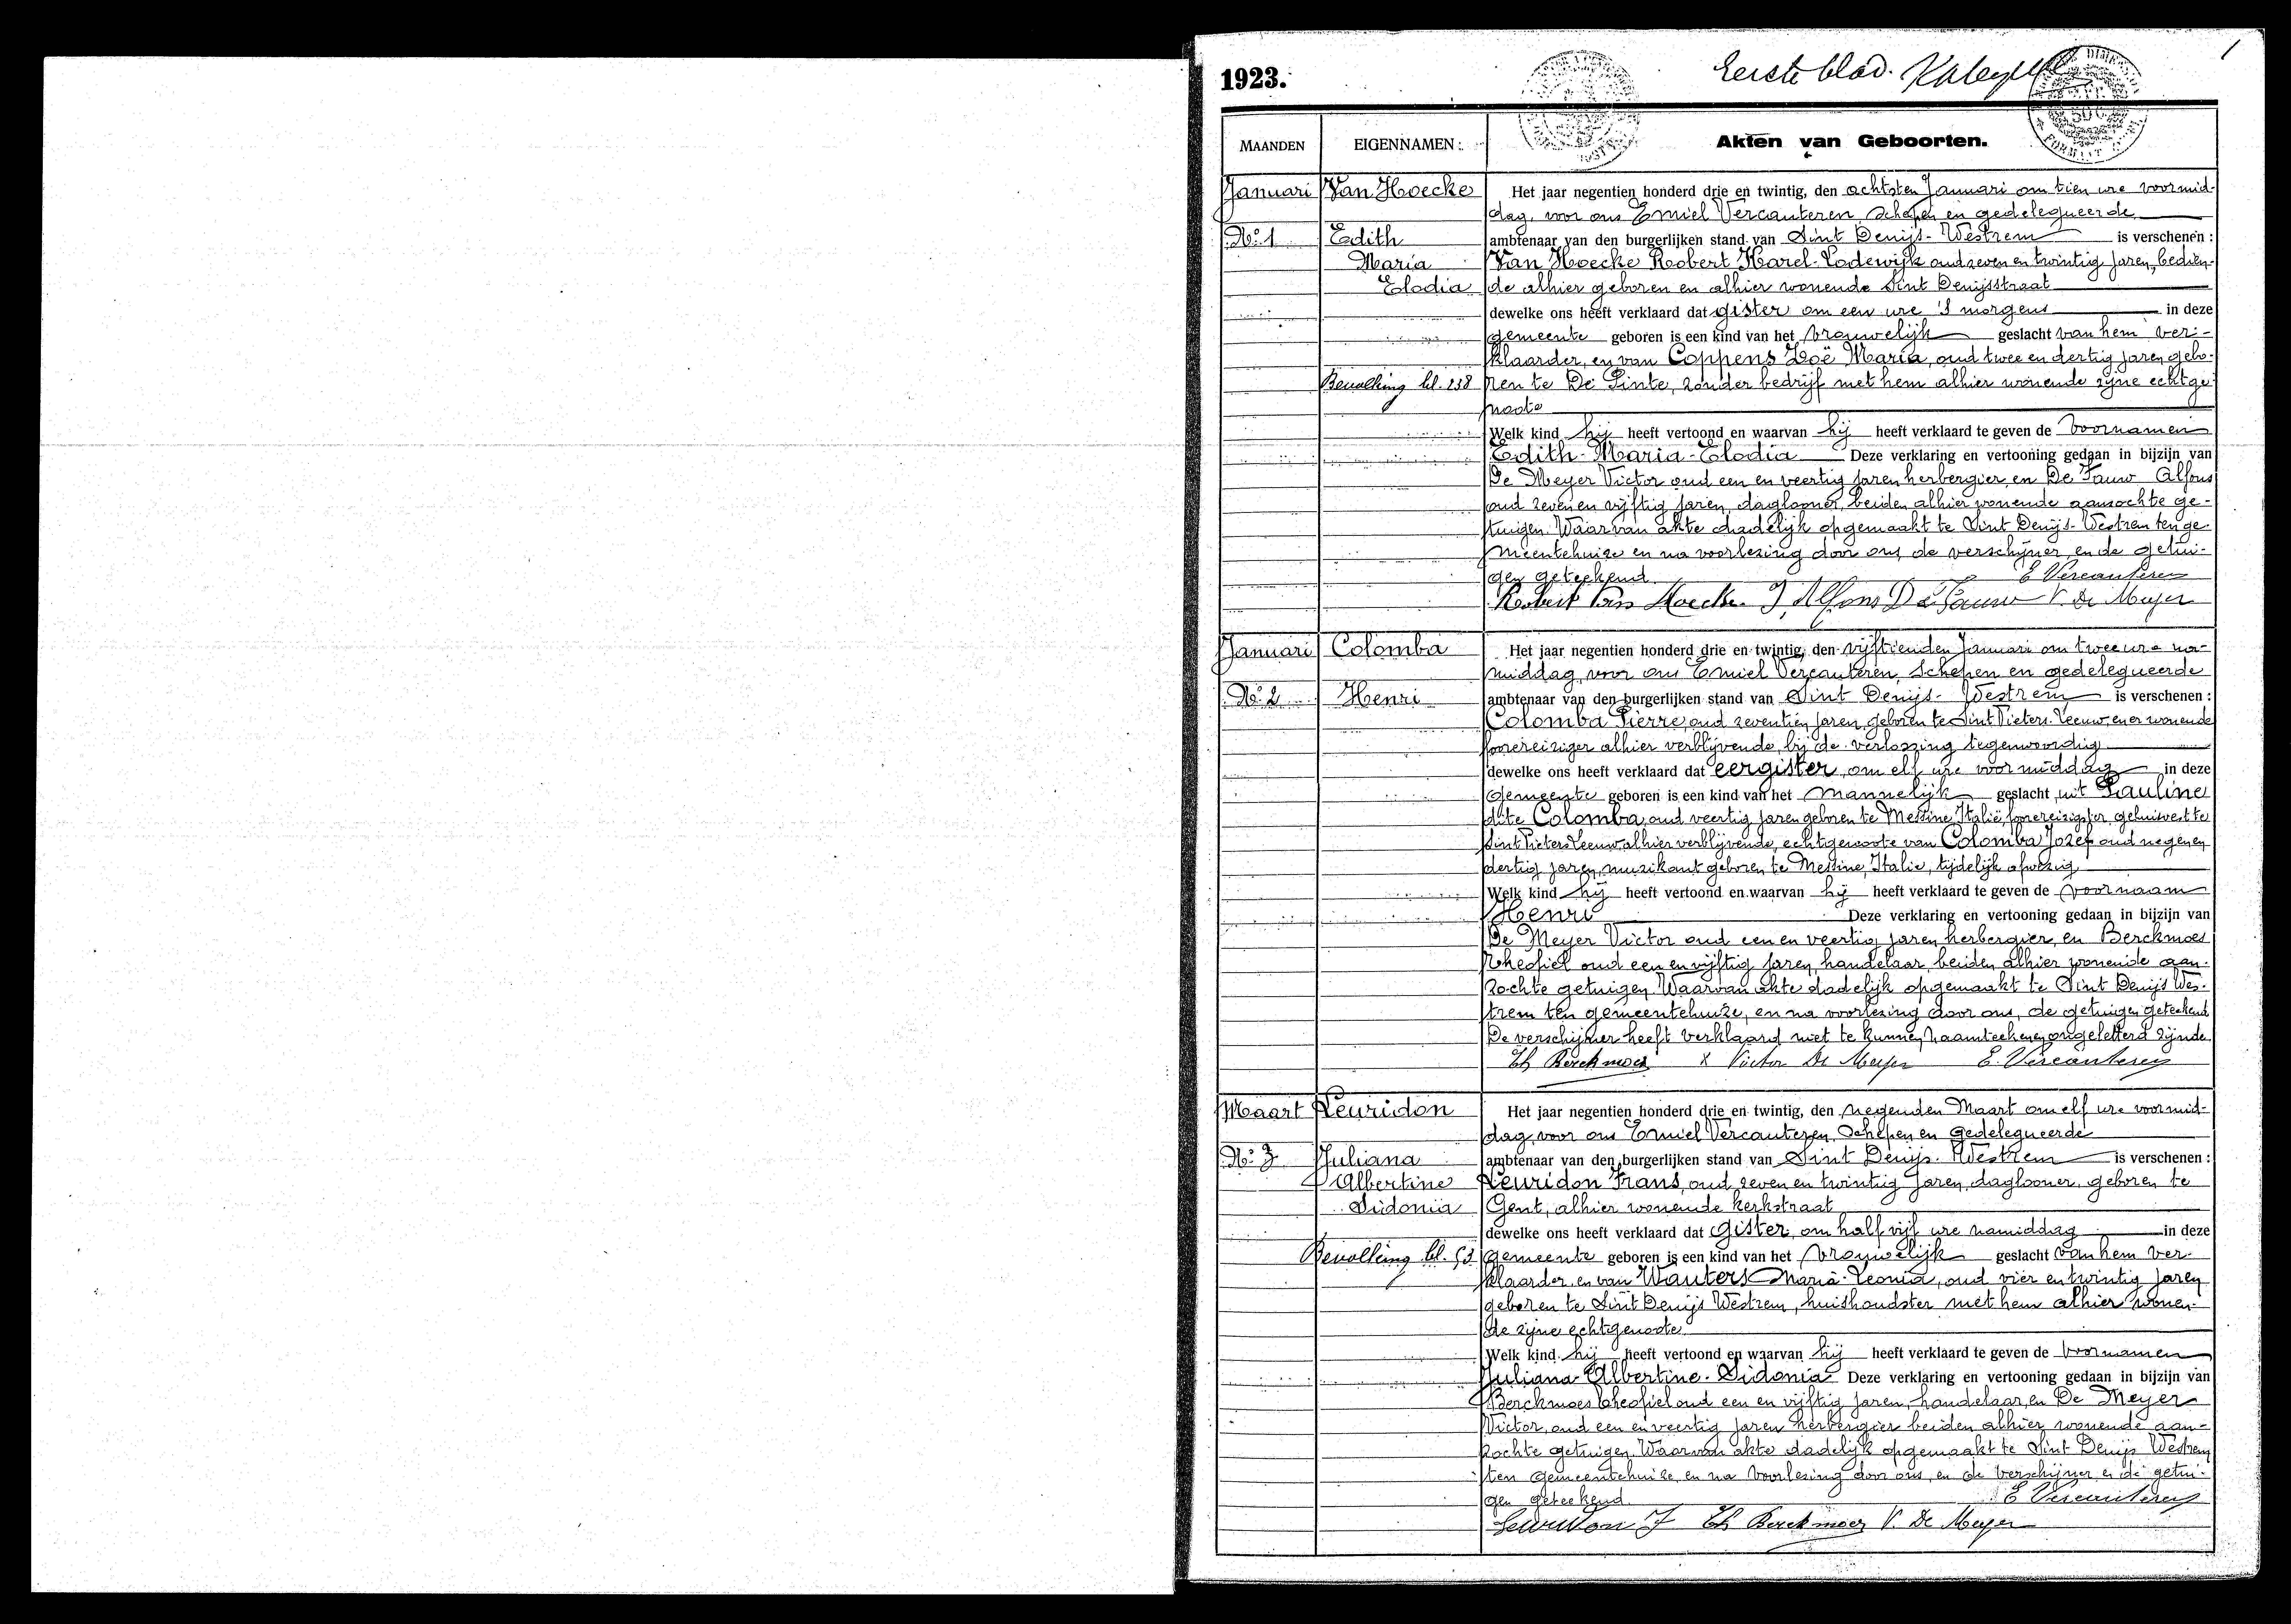 1
1923.
Eerste blad.
MAANDEN EIGENNAMEN: Akten van Geboorten.
Januari Van Hoecke Het jaar negentien honderd drie en twintig, den achtsten Januari om tien ure voormid-
dag, voor ons Emiel Vercauteren, Schepen en gedelegueerde
No. 1 Edith ambtenaar van den burgerlijken stand van Sint Denijs-Westrem is verschenen:
Maria Van Hoecke Robert Karel-Lodewijk oud zeven en twintig jaren, bedien-
Elodia de alhier geboren en alhier wonende Sint Denijsstraat
dewelke ons heeft verklaard dat gister om een ure 's morgens in deze
gemeente geboren is een kind van het vrouwelijk geslacht van hem ver-
klaarder, en van Coppens Zoë Maria, oud twee en dertig jaren, gebo-
Bevolking bl. 238 ren te De Pinte, zonder bedrijf met hem alhier wonende zijne echtge-
noote
Welk kind hij heeft vertoond en waarvan hij heeft verklaard te geven de voornamen
Edith-Maria-Elodia Deze verklaring en vertooning gedaan in bijzijn van
De Meyer Victor oud een en veertig jaren herbergier, en De Fauw Alfons
oud zeven en vijftig jaren, daglooner, beiden alhier wonende aanzochte ge-
tuigen. Waarvan akte dadelijk opgemaakt te Sint Denijs-Westrem ten ge-
meentehuize en na voorlezing door ons, de verschijner, en de getui-
gen geteekend. E Vercauteren
Robert Van Hoecke J, Alfons De Fauw V. De Meyer
Januari Colomba Het jaar negentien honderd drie en twintig, den vijftienden Januari om twee ure na-
middag, voor ons Emiel Vercauteren, Schepen en gedelegueerde
No. 2 Henri ambtenaar van den burgerlijken stand van Sint Denijs-Westrem is verschenen:
Colomba Pierre, oud zeventien jaren, geboren te Sint Pieters-Leeuw, en er wonende
foorereiziger alhier verblijvende, bij de verlossing tegenwoordig
dewelke ons heeft verklaard dat eergister, om elf ure voormiddag in deze
gemeente geboren is een kind van het mannelijk geslacht, uit Pauline
dite Colomba, oud veertig jaren geboren te Messine, Italie, foorereizigster, gehuisvest te
Sint Pieters Leeuw, alhier verblijvende, echtgenoote van Colomba Jozef oud negen en
dertig jaren, muzikant geboren te Messine, Italie, tijdelijk afwezig
Welk kind hij heeft vertoond en waarvan hij heeft verklaard te geven de voornaam
Henri Deze verklaring en vertooning gedaan in bijzijn van
De Meyer Victor oud een en veertig jaren herbergier, en Berckmoes
Theofiel oud een en vijftig jaren, handelaar, beiden alhier wonende aan-
zochte getuigen. Waarvan akte dadelijk opgemaakt te Sint Denijs Wes-
trem ten gemeentehuize, en na voorlezing door ons, de getuigen geteekend
De verschijner heeft verklaard niet te kunnen naamteekenen ongeletterd zijnde.
Th Berckmoes x Victor De Meyer E. Vercauteren
Maart Leuridon Het jaar negentien honderd drie en twintig, den negenden Maart om elf ure voormid-
dag, voor ons Emiel Vercauteren, Schepen en gedelegueerde
No. 3 Juliana ambtenaar van den burgerlijken stand van Sint Denijs-Westrem is verschenen:
Albertine Leuridon Frans, oud zeven en twintig jaren, daglooner, geboren te
Sidonia Gent, alhier wonende kerkstraat
dewelke ons heeft verklaard dat gister, om half vijf ure namiddag in deze
Bevolking bl. 53 gemeente geboren is een kind van het vrouwelijk geslacht van hem ver-
klaarder, en van Wauters Maria-Leonia, oud vier en twintig jaren
geboren te Sint Denijs Westrem, huishoudster met hem alhier wonen-
de zijne echtgenoote.
Welk kind hij heeft vertoond en waarvan hij heeft verklaard te geven de voornamen
Juliana-Albertine-Sidonia Deze verklaring en vertooning gedaan in bijzijn van
Berckmoes Theofiel oud een en vijftig jaren, handelaar, en De Meyer
Victor, oud een en veertig jaren herbergier beiden alhier wonende aan-
zochte getuigen. Waarvan akte dadelijk opgemaakt te Sint Denijs Westrem
ten gemeentehuize, en na voorlezing door ons, en de verschijner en de getui-
gen geteekend. E Vercauteren
Leuridon F Th Berckmoes V. De Meyer